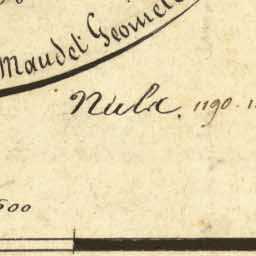 Maudet Geomet
Nula. 1190.
500